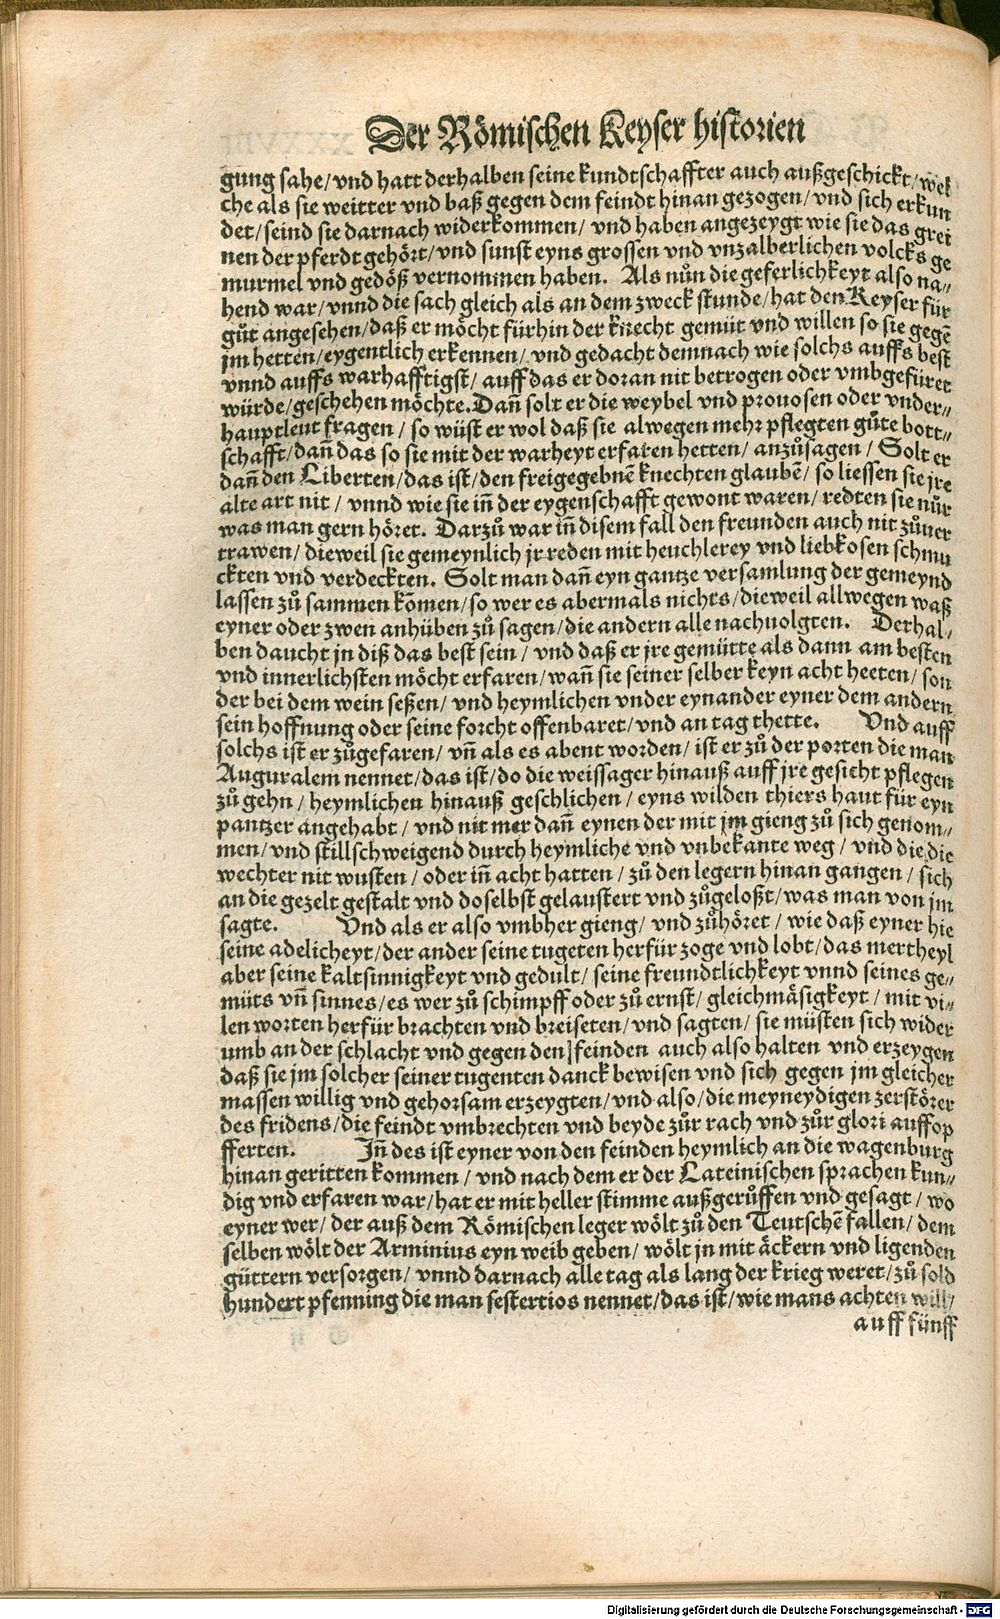 Der Römischen Keyser historien
gung sahe/vnd hatt derhalben seine kundtschaffter auch außgeschickt/wel
che als sie weitter vnd baß gegen dem feindt hinan gezogen/vnd sich erkun
det/seind sie darnach widerkommen/vnd haben angezeygt wie sie das grei
nen der pferdt gehört/vnd sunst eyns grossen vnd vnzalberlichen volcks ge
murmel vnd gedöß vernommen haben. Als nůn die geferlichkeyt also na-
hend war/vnnd die sach gleich als an dem zweck stunde/hat den Keyser für
gůt angesehen/daß er möcht fürhin der knecht gemüt vnd willen so sie gegẽ
jm hetten/eygentlich erkennen/vnd gedacht demnach wie solchs auffs best
vnnd auffs warhafftigst/auff das er doran nit betrogen oder vmbgefüret
würde/geschehen möchte. Dañ solt er die weybel vnd prouosen oder vnder-
hauptleut fragen/so wüst er wol daß sie alwegen mehr pflegten gůte bott-
schafft/dañ das so sie mit der warheyt erfaren hetten/anzůsagen/Solt er
dañ den Liberten/das ist/den freigegebnẽ knechten glaubẽ/so liessen sie jre
alte art nit/vnnd wie sie iñ der eygenschafft gewont waren/redten sie nůr
was man gern höret. Darzů war iñ disem fall den freunden auch nit zůuer
trawen/dieweil sie gemeynlich jr reden mit heuchlerey vnd liebkosen schmu
ckten vnd verdeckten. Solt man dañ eyn gantze versamlung der gemeynd
lassen zů sammen kõmen/so wer es abermals nichts/dieweil allwegen waß
eyner oder zwen anhüben zů sagen/die andern alle nachuolgten. Derhal-
ben daucht jn diß das best sein/vnd daß er jre gemütte als dann am besten
vnd innerlichsten möcht erfaren/wañ sie seiner selber keyn acht heeten/son
der bei dem wein seßen/vnd heymlichen vnder eynander eyner dem andern
sein hoffnung oder seine forcht offenbaret/vnd an tag thette. Vnd auff
solchs ist er zůgefaren/vñ als es abent worden/ist er zů der porten die man
Auguralem nennet/das ist/do die weissager hinauß auff jre gesicht pflegen
zů gehn/heymlichen hinauß geschlichen/eyns wilden thiers haut für eyn
pantzer angehabt/vnd nit mer dañ eynen der mit jm gieng zů sich genom-
men/vnd stillschweigend durch heymliche vnd vnbekante weg/vnd die die
wechter nit wusten/oder iñ acht hatten/zů den legern hinan gangen/sich
an die gezelt gestalt vnd doselbst gelaustert vnd zůgeloßt/was man von jm
sagte. Vnd als er also vmbher gieng/vnd zůhöret/wie daß eyner hie
seine adelicheyt/der ander seine tugeten herfür zoge vnd lobt/das mertheyl
aber seine kaltsinnigkeyt vnd gedult/seine freundtlichkeyt vnnd seines ge-
müts vñ sinnes/es wer zů schimpff oder zů ernst/gleichmäsigkeyt/mit vi-
len worten herfür brachten vnd breiseten/vnd sagten/sie müsten sich wider
umb an der schlacht vnd gegen den feinden auch also halten vnd erzeygen
daß sie jm solcher seiner tugenten danck bewisen vnd sich gegen jm gleicher
massen willig vnd gehorsam erzeygten/vnd also/die meyneydigen zerstörer
des fridens/die feindt vmbrechten vnd beyde zůr rach vnd zůr glori auffop
fferten. Iñ des ist eyner von den feinden heymlich an die wagenburg
hinan geritten kommen/vnd nach dem er der Lateinischen sprachen kun-
dig vnd erfaren war/hat er mit heller stimme außgerůffen vnd gesagt/wo
eyner wer/der auß dem Römischen leger wölt zů den Teutschẽ fallen/dem
selben wölt der Arminius eyn weib geben/wölt jn mit äckern vnd ligenden
güttern versorgen/vnnd darnach alle tag als lang der krieg weret/zů sold
hundert pfenning die man sestertios nennet/das ist/wie mans achten will/
auff fünff
Digitalisierung gefördert durch die Deutsche Forschungsgemeinschaft - DFG